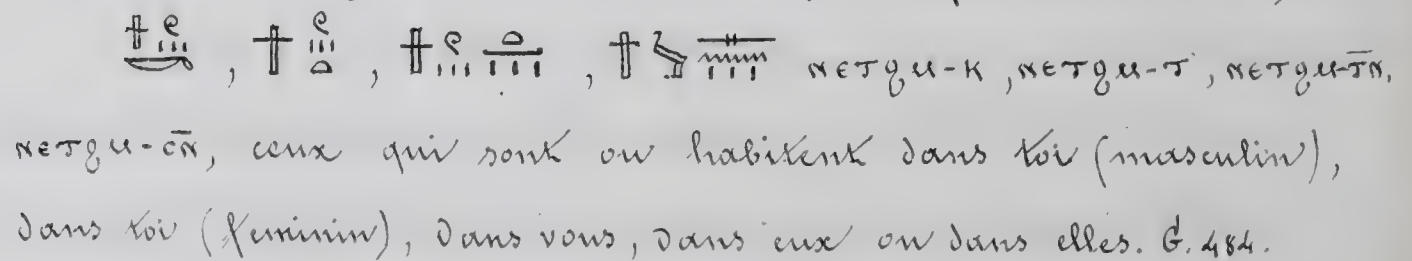 𓏶𓏲𓏥𓎡 , 𓏶𓏲𓏥𓏏 , 𓏶𓏲𓏥𓏏𓈖𓏥 , 𓏶𓅱𓋴𓈖𓏥 ⲛⲉⲧϩⲙ-ⲕ , ⲛⲉⲧϩⲙ-ⲧ , ⲛⲉⲧϩⲙ-ⲧ̅ⲛ̅,
ⲛⲉⲧϩⲙ-ⲥ̅ⲛ̅, ceux qui sont ou habitent dans toi (masculin),
dans toi (feminin), dans vous, dans eux ou dans elles. G. 484.